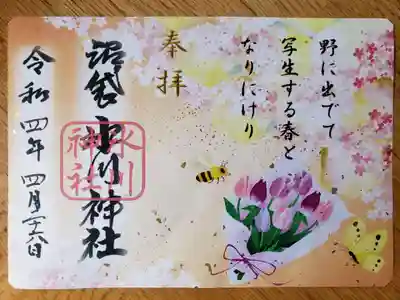 野に出でて
写生する春と
なりにけり
奉拝
沼袋 氷川神社
氷川
神社
令和四年四月二十八日